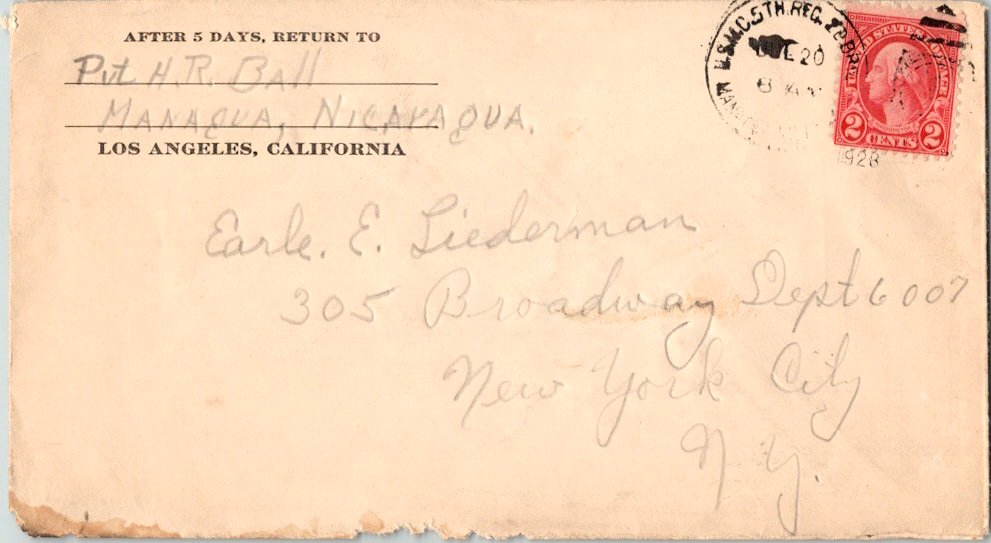 AFTER 5 DAYS, RETURN TO
Pvt H.R. Ball
MANAGUA, NICARAGUA.
LOS ANGELES, CALIFORNIA
U.S.M.C. 5TH. REG. 2D BR
20
1928
UNITED STATES POSTAGE
2 CENTS 2
Earle. E. Liederman
305 Broadway Dept 6007
New York City
N.Y.